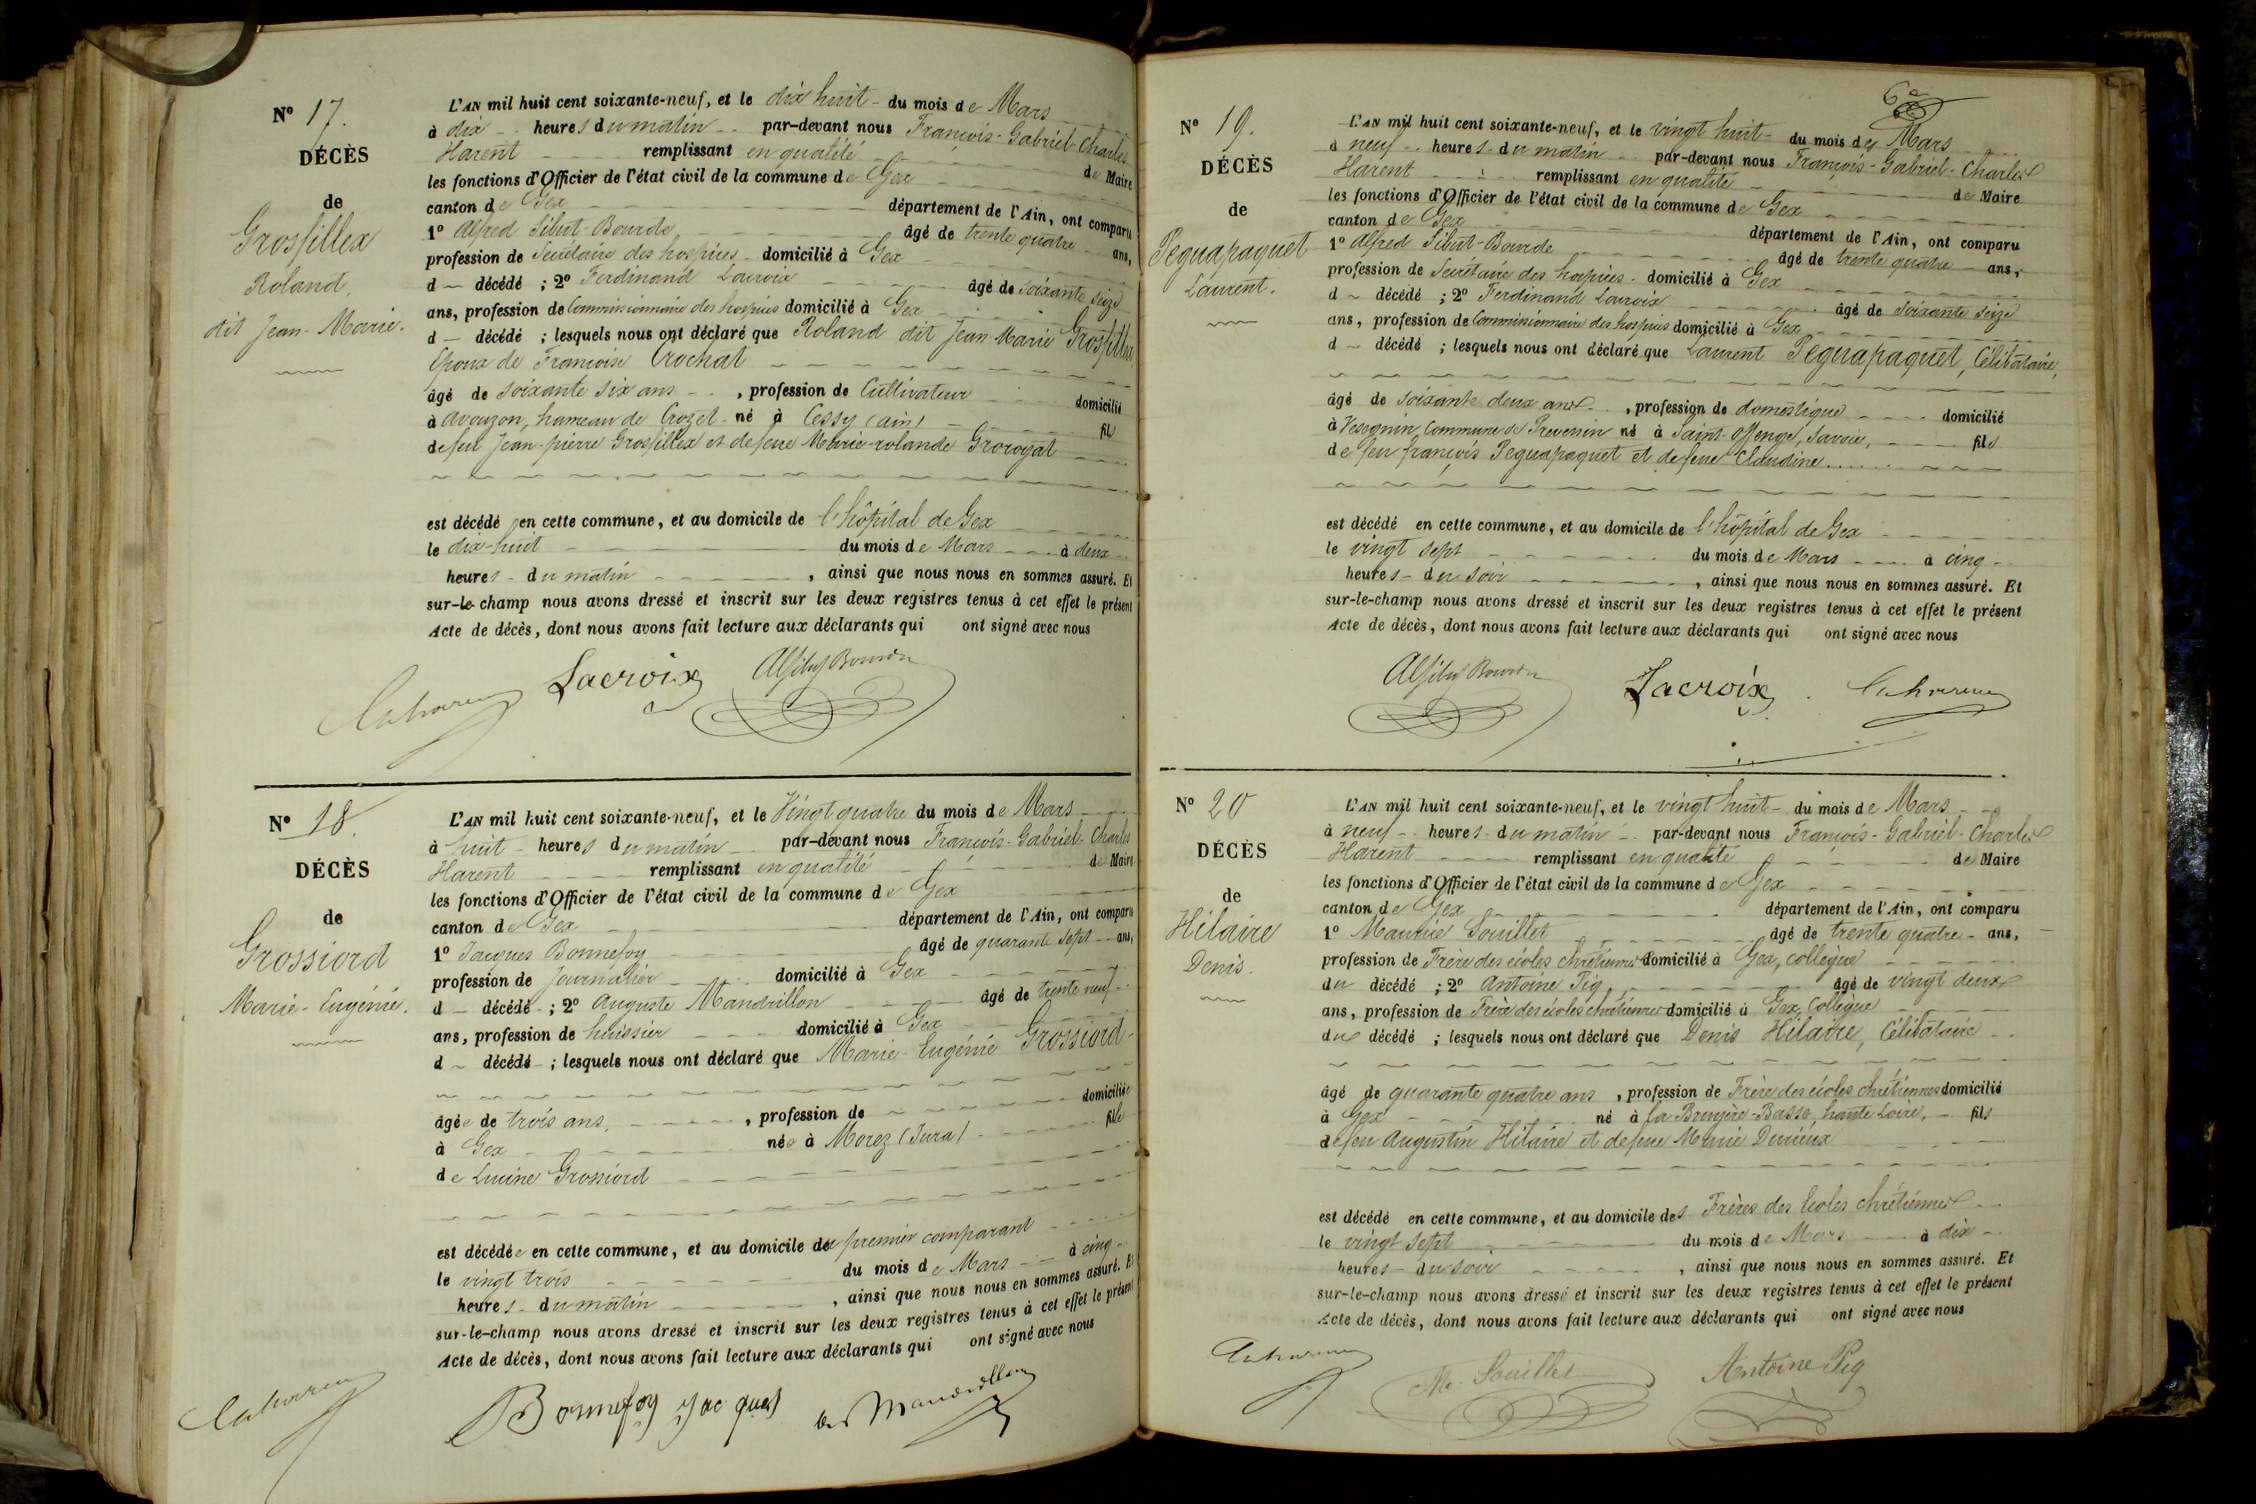 N° 17.
DÉCÈS
de
Grosfillex
Roland.
dit Jean-Marie.
L'AN mil huit cent soixante-neuf, et le dix huit - du mois de Mars
à dix heures du matin par-devant nous François-Gabriel-Charles
Harent remplissant en qualité de Maire
les fonctions d'Officier de l'état civil de la commune de Gex
canton de Gex département de l'Ain, ont comparu
1° Alfred Sibut-Bourde, âgé de trente quatre ans,
profession de Secrétaire des hospices domicilié à Gex
d décédé ; 2° Ferdinand Lacroix âgé de soixante seize
ans, profession de Commissionnaire des hospices domicilié à Gex
d décédé ; lesquels nous ont déclaré que Roland dit Jean-Marie Grosfillex
Epoux de Françoise Crochat
âgé de soixante six ans, profession de Cultivateur domicilié
à Avouzon, hameau de Crozet né à Cessy (ain) fils
de feu Jean-pierre Grosfillex et de feue Marie-rolande Grorogat
est décédé en cette commune, et au domicile de l'hôpital de Gex
le dix-huit du mois de Mars à deux
heures du matin, ainsi que nous nous en sommes assuré. Et
sur-le-champ nous avons dressé et inscrit sur les deux registres tenus à cet effet le présent
Acte de décès, dont nous avons fait lecture aux déclarants qui ont signé avec nous
Lacroix
N° 18.
DÉCÈS
de
Grossiord
Marie-Eugénie.
L'AN mil huit cent soixante-neuf, et le Vingt quatre du mois de Mars
à huit heures du matin par-devant nous François-Gabriel-Charles
Harent remplissant en qualité de Maire
les fonctions d'Officier de l'état civil de la commune de Gex
canton de Gex département de l'Ain, ont comparu
1° Jacques Bonnefoy âgé de quarante sept ans,
profession de Journalier domicilié à Gex
d décédé ; 2° Auguste Mandrillon âgé de trente neuf
ans, profession de huissier domicilié à Gex
d décédé ; lesquels nous ont déclaré que Marie-Eugénie Grossiord
âgée de trois ans, profession de domiciliée
à Gex née à Morez (Jura) fille
de Lucine Grossiord
est décédée en cette commune, et au domicile du premier comparant
le vingt trois du mois de Mars à cinq
heures du matin, ainsi que nous nous en sommes assuré. Et
sur-le-champ nous avons dressé et inscrit sur les deux registres tenus à cet effet le présent
Acte de décès, dont nous avons fait lecture aux déclarants qui ont signé avec nous
Bonnefoy Jacques Mandrillon
N° 19.
DÉCÈS
de
Peguapaquet
Laurent.
L'AN mil huit cent soixante-neuf, et le vingt huit - du mois de Mars
à neuf heures du matin par-devant nous François-Gabriel-Charles
Harent remplissant en qualité de Maire
les fonctions d'Officier de l'état civil de la commune de Gex
canton de Gex département de l'Ain, ont comparu
1° Alfred Sibut-Bourde âgé de trente quatre ans,
profession de Secrétaire des hospices domicilié à Gex
d décédé ; 2° Ferdinand Lacroix âgé de soixante seize
ans, profession de Commissionnaire des hospices domicilié à Gex
d décédé ; lesquels nous ont déclaré que Laurent Peguapaquet, Célibataire,
âgé de soixante deux ans, profession de domestique domicilié
à Vesegnin, Commune de Prevessin né à Saint-Offenge, Savoie, fils
de feu françois Peguapaquet et de feue Claudine........
est décédé en cette commune, et au domicile de l'hôpital de Gex
le vingt sept du mois de Mars à cinq
heures du soir, ainsi que nous nous en sommes assuré. Et
sur-le-champ nous avons dressé et inscrit sur les deux registres tenus à cet effet le présent
Acte de décès, dont nous avons fait lecture aux déclarants qui ont signé avec nous
Lacroix
N° 20
DÉCÈS
de
Hilaire
Denis.
L'AN mil huit cent soixante-neuf, et le vingt huit - du mois de Mars
à neuf heures du matin par-devant nous François-Gabriel-Charles
Harent remplissant en qualité de Maire
les fonctions d'Officier de l'état civil de la commune de Gex
canton de Gex département de l'Ain, ont comparu
1° Maurice Souillet âgé de trente quatre ans,
profession de Frère des écoles chrétiennes domicilié à Gex, collègue
du décédé ; 2° Antoine Pig âgé de vingt deux
ans, profession de Frère des écoles chrétiennes domicilié à Gex, Collègue
du décédé ; lesquels nous ont déclaré que Denis Hilaire, Célibataire
âgé de quarante quatre ans, profession de Frère des écoles chrétiennes domicilié
à Gex né à la Bruyère-Basse, haute Loire, fils
de feu Augustin Hilaire et de feue Marie Durieux
est décédé en cette commune, et au domicile des Frères des Ecoles chrétiennes
le vingt sept du mois de Mars à dix
heures du soir, ainsi que nous nous en sommes assuré. Et
sur-le-champ nous avons dressé et inscrit sur les deux registres tenus à cet effet le présent
Acte de décès, dont nous avons fait lecture aux déclarants qui ont signé avec nous
M. Souillet Antoine Pig